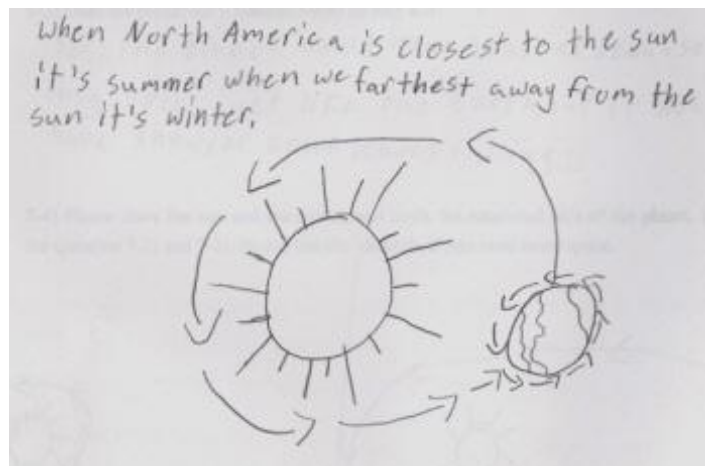 When North America is closest to the sun
it's summer when we farthest away from the
sun it's winter.